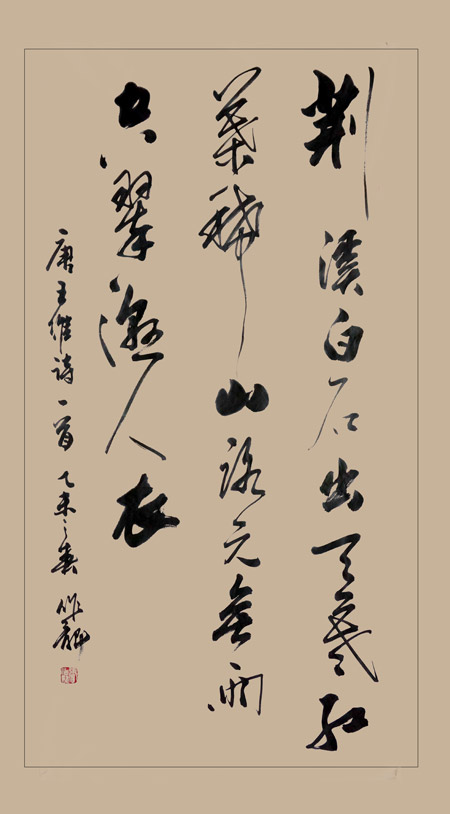 荆溪白石出天寒紅
葉稀山路元無雨
空翠濕人衣
唐王維詩一首 乙未之春